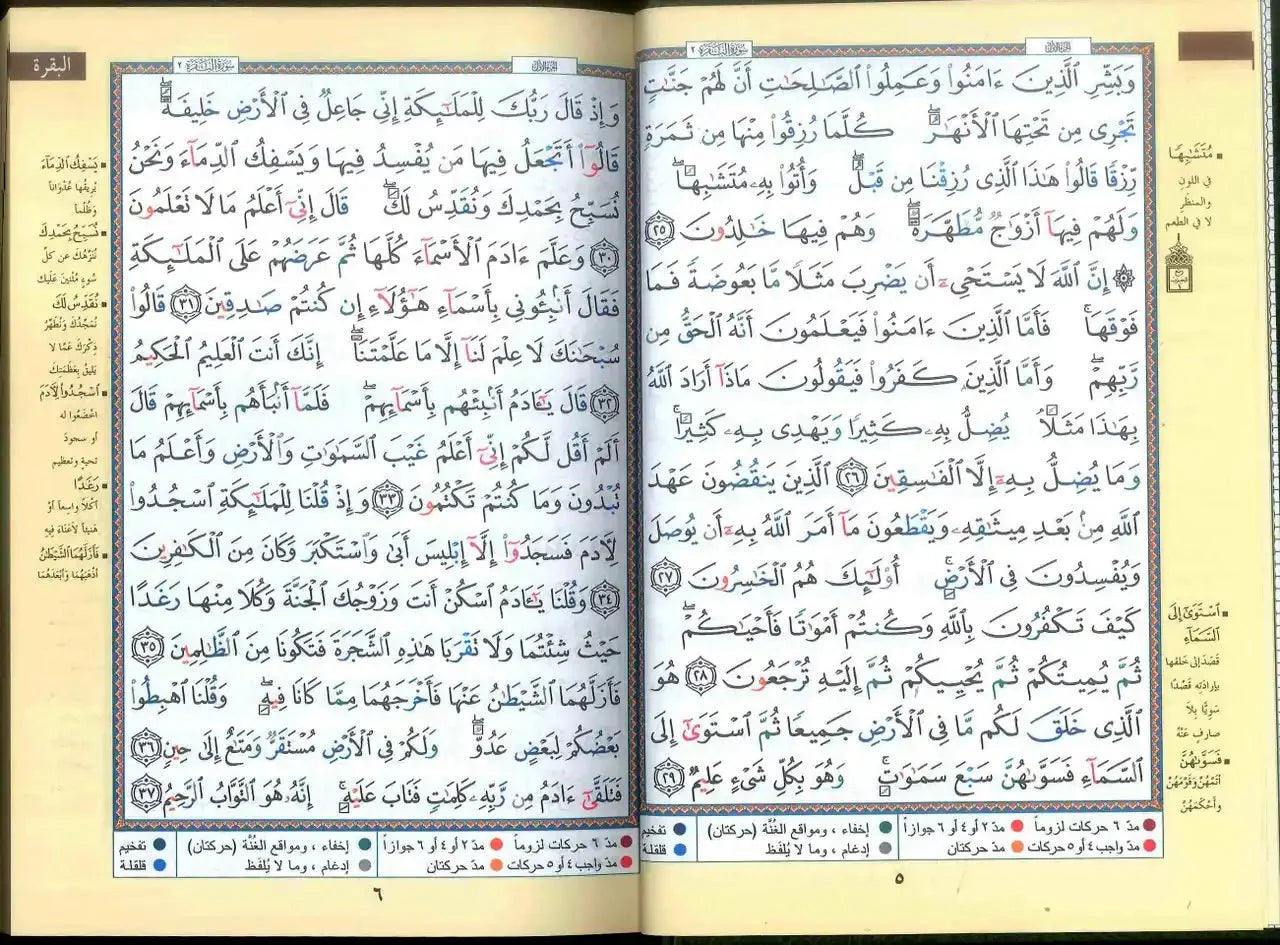 سورة البقرة ٢
الجزء الأول
وَبَشِّرِ الَّذِينَ ءَامَنُوا وَعَمِلُوا الصَّـٰلِحَـٰتِ أَنَّ لَهُمْ جَنَّـٰتٍ
تَجْرِى مِن تَحْتِهَا الْأَنْهَـٰرُ ۖ كُلَّمَا رُزِقُوا مِنْهَا مِن ثَمَرَةٍ
رِّزْقًا قَالُوا هَـٰذَا الَّذِى رُزِقْنَا مِن قَبْلُ ۖ وَأُتُوا بِهِۦ مُتَشَـٰبِهًا ۖ
وَلَهُمْ فِيهَآ أَزْوَٰجٌ مُّطَهَّرَةٌ ۖ وَهُمْ فِيهَا خَـٰلِدُونَ ٢٥
۞ إِنَّ اللَّهَ لَا يَسْتَحْىِۦٓ أَن يَضْرِبَ مَثَلًا مَّا بَعُوضَةً فَمَا
فَوْقَهَا ۚ فَأَمَّا الَّذِينَ ءَامَنُوا فَيَعْلَمُونَ أَنَّهُ الْحَقُّ مِن
رَّبِّهِمْ ۖ وَأَمَّا الَّذِينَ كَفَرُوا فَيَقُولُونَ مَاذَآ أَرَادَ اللَّهُ
بِهَـٰذَا مَثَلًا ۘ يُضِلُّ بِهِۦ كَثِيرًا وَيَهْدِى بِهِۦ كَثِيرًا ۚ
وَمَا يُضِلُّ بِهِۦٓ إِلَّا الْفَـٰسِقِينَ ٢٦ الَّذِينَ يَنقُضُونَ عَهْدَ
اللَّهِ مِنۢ بَعْدِ مِيثَـٰقِهِۦ وَيَقْطَعُونَ مَآ أَمَرَ اللَّهُ بِهِۦٓ أَن يُوصَلَ
وَيُفْسِدُونَ فِى الْأَرْضِ ۚ أُولَـٰٓئِكَ هُمُ الْخَـٰسِرُونَ ٢٧
كَيْفَ تَكْفُرُونَ بِاللَّهِ وَكُنتُمْ أَمْوَٰتًا فَأَحْيَـٰكُمْ ۖ
ثُمَّ يُمِيتُكُمْ ثُمَّ يُحْيِيكُمْ ثُمَّ إِلَيْهِ تُرْجَعُونَ ٢٨ هُوَ
الَّذِى خَلَقَ لَكُم مَّا فِى الْأَرْضِ جَمِيعًا ثُمَّ اسْتَوَىٰٓ إِلَى
السَّمَآءِ فَسَوَّىٰهُنَّ سَبْعَ سَمَـٰوَٰتٍ ۚ وَهُوَ بِكُلِّ شَىْءٍ عَلِيمٌ ٢٩
مُتَشَـٰبِهًا
في اللون
والمنظر
لا في الطعم
اسْتَوَىٰٓ إِلَى
السَّمَآءِ
قَصَدَ إلى خلقها
بإرادته قَصْدًا
سَويًّا بِلَا
صارفٍ عَنْهُ
فَسَوَّىٰهُنَّ
أتَمَّهُنَّ وقَوَّمَهُنَّ
وأَحْكَمَهُنَّ
مدّ ٦ حركات لزوماً مدّ ٢ أو ٤ أو ٦ جوازاً إخفاء ، ومواقع الغُنَّة (حركتان) تفخيم
مدّ واجب ٤ أو ٥ حركات مدّ حركتان إدغام ، وما لا يُلفَظ قلقلة
٥
البقرة
سورة البقرة ٢
الجزء الأول
وَإِذْ قَالَ رَبُّكَ لِلْمَلَـٰٓئِكَةِ إِنِّى جَاعِلٌ فِى الْأَرْضِ خَلِيفَةً ۖ
قَالُوٓا أَتَجْعَلُ فِيهَا مَن يُفْسِدُ فِيهَا وَيَسْفِكُ الدِّمَآءَ وَنَحْنُ
نُسَبِّحُ بِحَمْدِكَ وَنُقَدِّسُ لَكَ ۖ قَالَ إِنِّىٓ أَعْلَمُ مَا لَا تَعْلَمُونَ
٣٠ وَعَلَّمَ ءَادَمَ الْأَسْمَآءَ كُلَّهَا ثُمَّ عَرَضَهُمْ عَلَى الْمَلَـٰٓئِكَةِ
فَقَالَ أَنۢبِـُٔونِى بِأَسْمَآءِ هَـٰٓؤُلَآءِ إِن كُنتُمْ صَـٰدِقِينَ ٣١ قَالُوا
سُبْحَـٰنَكَ لَا عِلْمَ لَنَآ إِلَّا مَا عَلَّمْتَنَآ ۖ إِنَّكَ أَنتَ الْعَلِيمُ الْحَكِيمُ
٣٢ قَالَ يَـٰٓـَٔادَمُ أَنۢبِئْهُم بِأَسْمَآئِهِمْ ۖ فَلَمَّآ أَنۢبَأَهُم بِأَسْمَآئِهِمْ قَالَ
أَلَمْ أَقُل لَّكُمْ إِنِّىٓ أَعْلَمُ غَيْبَ السَّمَـٰوَٰتِ وَالْأَرْضِ وَأَعْلَمُ مَا
تُبْدُونَ وَمَا كُنتُمْ تَكْتُمُونَ ٣٣ وَإِذْ قُلْنَا لِلْمَلَـٰٓئِكَةِ اسْجُدُوا
لِـَٔادَمَ فَسَجَدُوٓا إِلَّآ إِبْلِيسَ أَبَىٰ وَاسْتَكْبَرَ وَكَانَ مِنَ الْكَـٰفِرِينَ
٣٤ وَقُلْنَا يَـٰٓـَٔادَمُ اسْكُنْ أَنتَ وَزَوْجُكَ الْجَنَّةَ وَكُلَا مِنْهَا رَغَدًا
حَيْثُ شِئْتُمَا وَلَا تَقْرَبَا هَـٰذِهِ الشَّجَرَةَ فَتَكُونَا مِنَ الظَّـٰلِمِينَ ٣٥
فَأَزَلَّهُمَا الشَّيْطَـٰنُ عَنْهَا فَأَخْرَجَهُمَا مِمَّا كَانَا فِيهِ ۖ وَقُلْنَا اهْبِطُوا
بَعْضُكُمْ لِبَعْضٍ عَدُوٌّ ۖ وَلَكُمْ فِى الْأَرْضِ مُسْتَقَرٌّ وَمَتَـٰعٌ إِلَىٰ حِينٍ ٣٦
فَتَلَقَّىٰٓ ءَادَمُ مِن رَّبِّهِۦ كَلِمَـٰتٍ فَتَابَ عَلَيْهِ ۚ إِنَّهُۥ هُوَ التَّوَّابُ الرَّحِيمُ ٣٧
يَسْفِكُ الدِّمَآءَ
يُريقُها عُدْوَاناً
وَظُلْماً
نُسَبِّحُ بِحَمْدِكَ
نُنَزِّهُكَ عن كلِّ
سُوءٍ مُثْنينَ عليك
نُقَدِّسُ لَكَ
نُمَجِّدُكَ ونُطَهِّرُ
ذِكْرَكَ عَمَّا لا
يَليقُ بِعَظَمَتِكَ
اسْجُدُوا لِـَٔادَمَ
اخْضَعُوا له
أو سجودَ
تحيةٍ وتعظيم
رَغَدًا
أكْلاً واسِعاً أوْ
هَنيئاً لا عَنَاءَ فيهِ
فَأَزَلَّهُمَا الشَّيْطَـٰنُ
أَذْهَبَهُمَا وَأَبْعَدَهُمَا
مدّ ٦ حركات لزوماً مدّ ٢ أو ٤ أو ٦ جوازاً إخفاء ، ومواقع الغُنَّة (حركتان) تفخيم
مدّ واجب ٤ أو ٥ حركات مدّ حركتان إدغام ، وما لا يُلفَظ قلقلة
٦